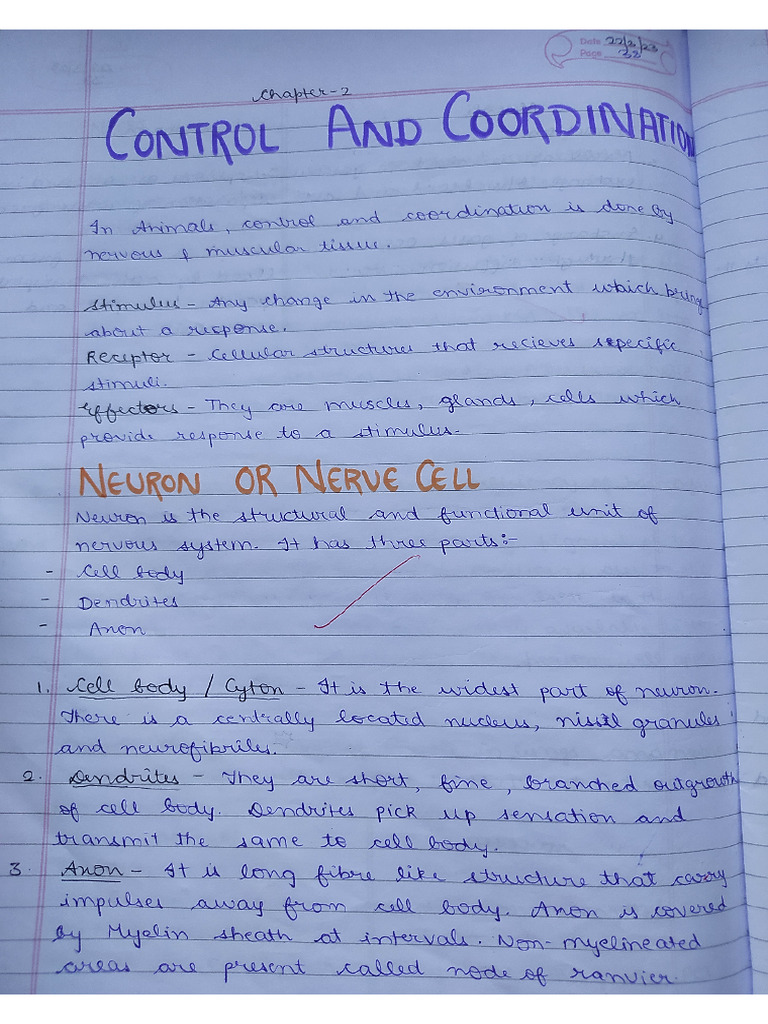 Date 22/2/23
Page 32
Chapter-2
CONTROL AND COORDINATION
In Animals, control and coordination is done by
nervous & muscular tissue.
Stimulus - Any change in the environment which bring
about a response.
Receptor - Cellular structures that recieves specific
stimuli.
Effectors - They are muscles, glands, cells which
provide response to a stimulus.
NEURON OR NERVE CELL
Neuron is the structural and functional unit of
nervous system. It has three parts:-
- Cell body
- Dendrites
- Anon
1. Cell body / Cyton - It is the widest part of neuron.
There is a centrally located nucleus, nissil granules
and neurofibriles.
2. Dendrites - They are short, fine, branched outgrowth
of cell body. Dendrites pick up sensation and
transmit the same to cell body.
3. Anon - It is long fibre like structure that carry
impulses away from cell body. Anon is covered
by Myelin sheath at intervals. Non-myelineated
areas are present called node of ranvier.